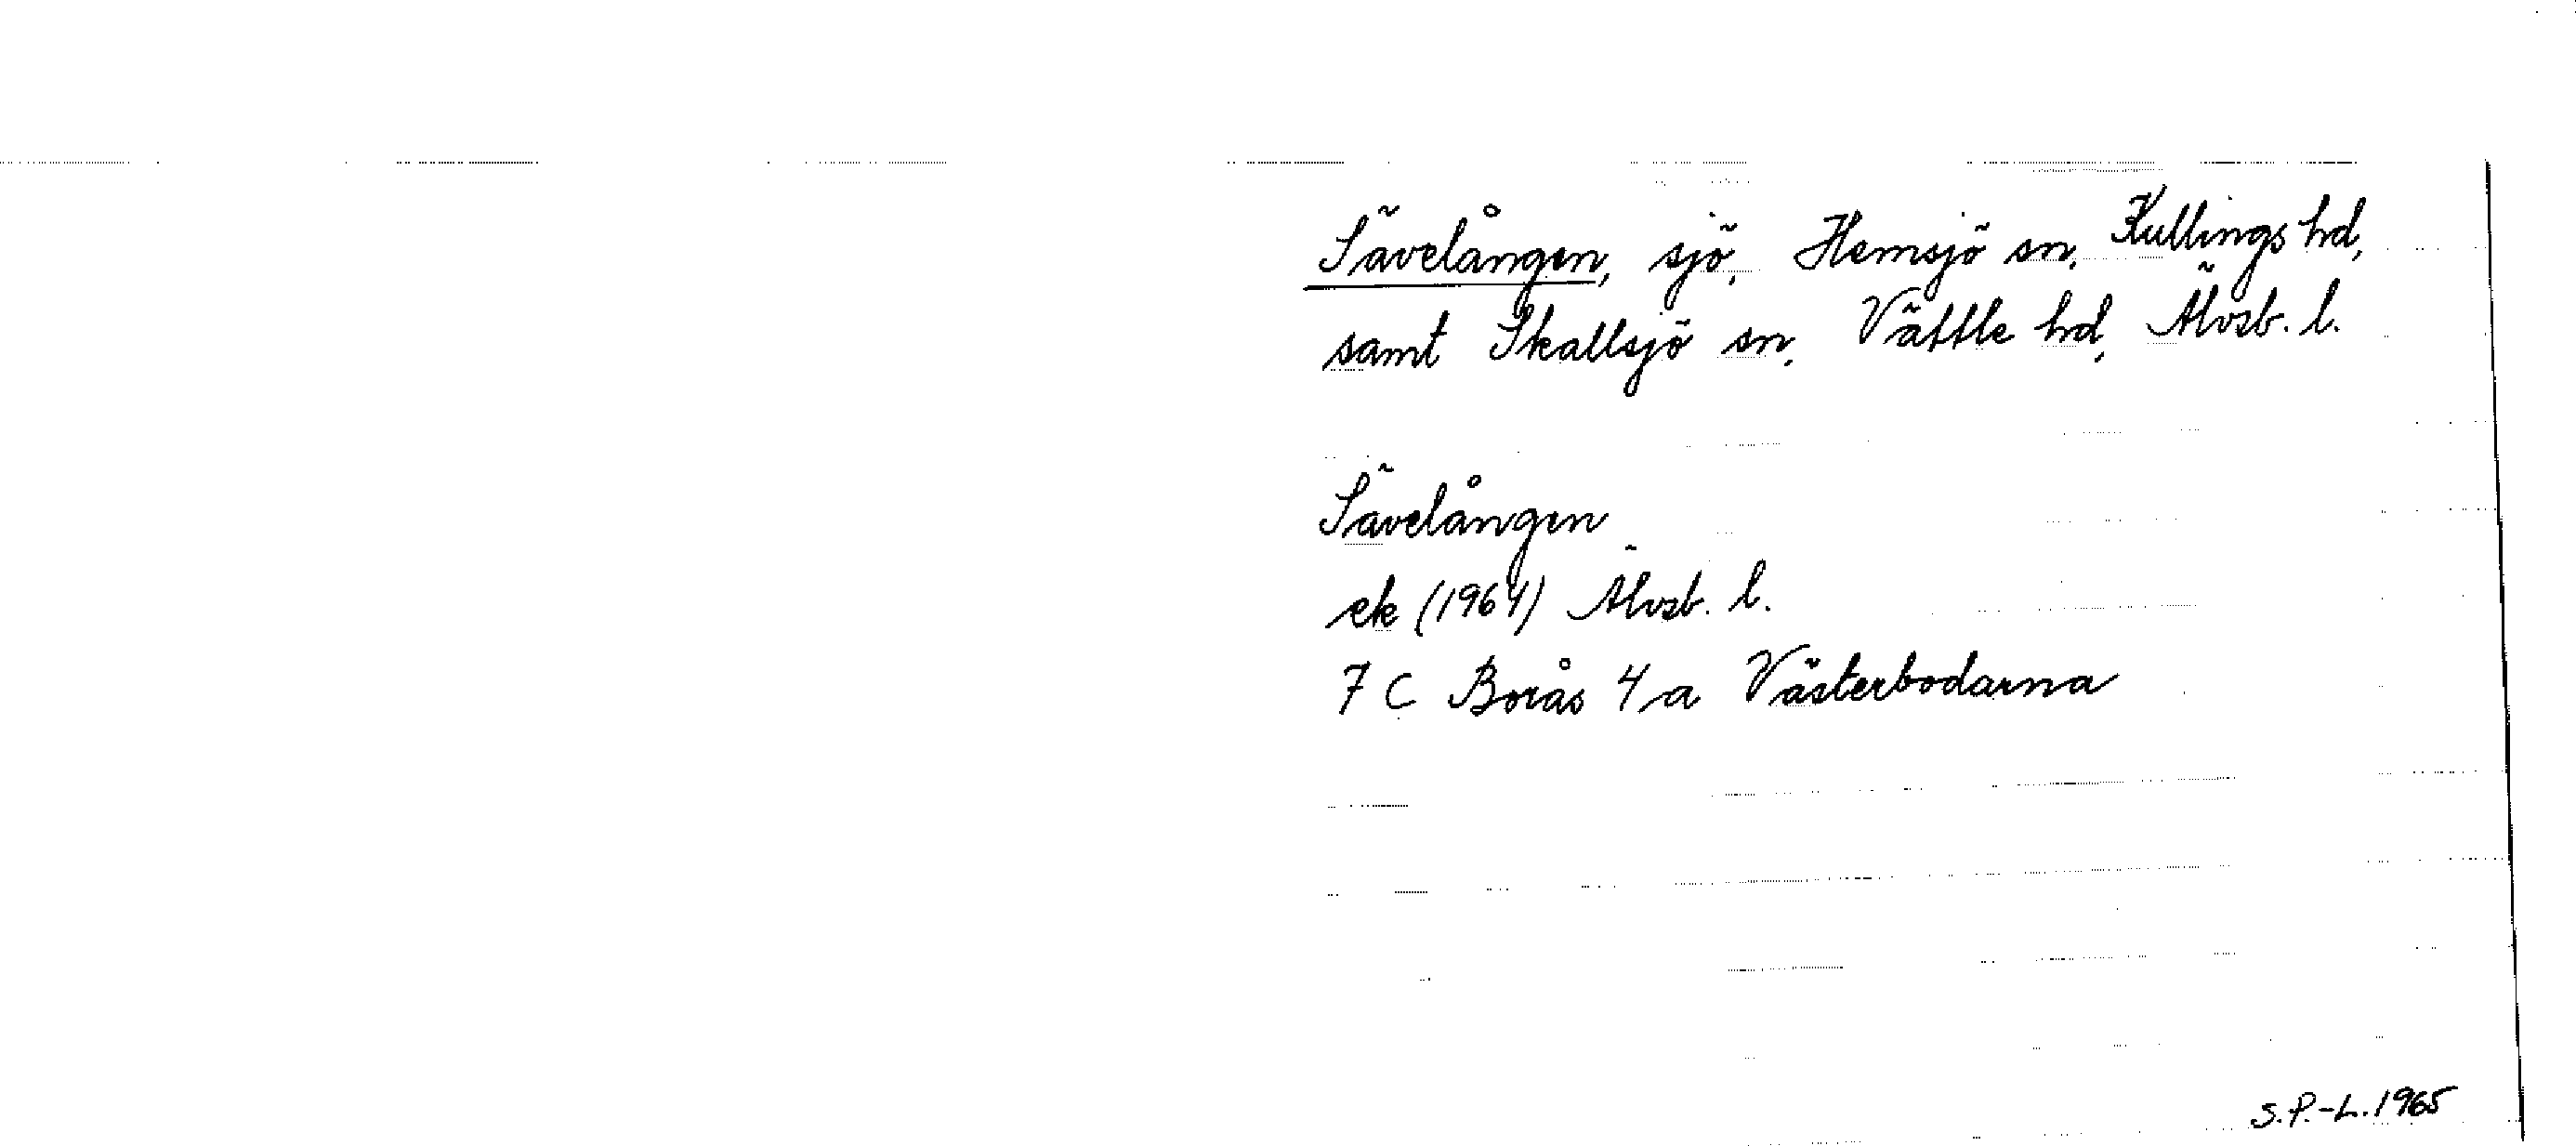 Sävelången, sjö, Hemsjö sn, Kullings hd,
samt Skallsjö sn, Vättle hd, Älvsb. l.
Sävelången
ek (1964) Älvsb. l.
7 C Borås 4 a Västerbodarna
S.P.-L. 1965